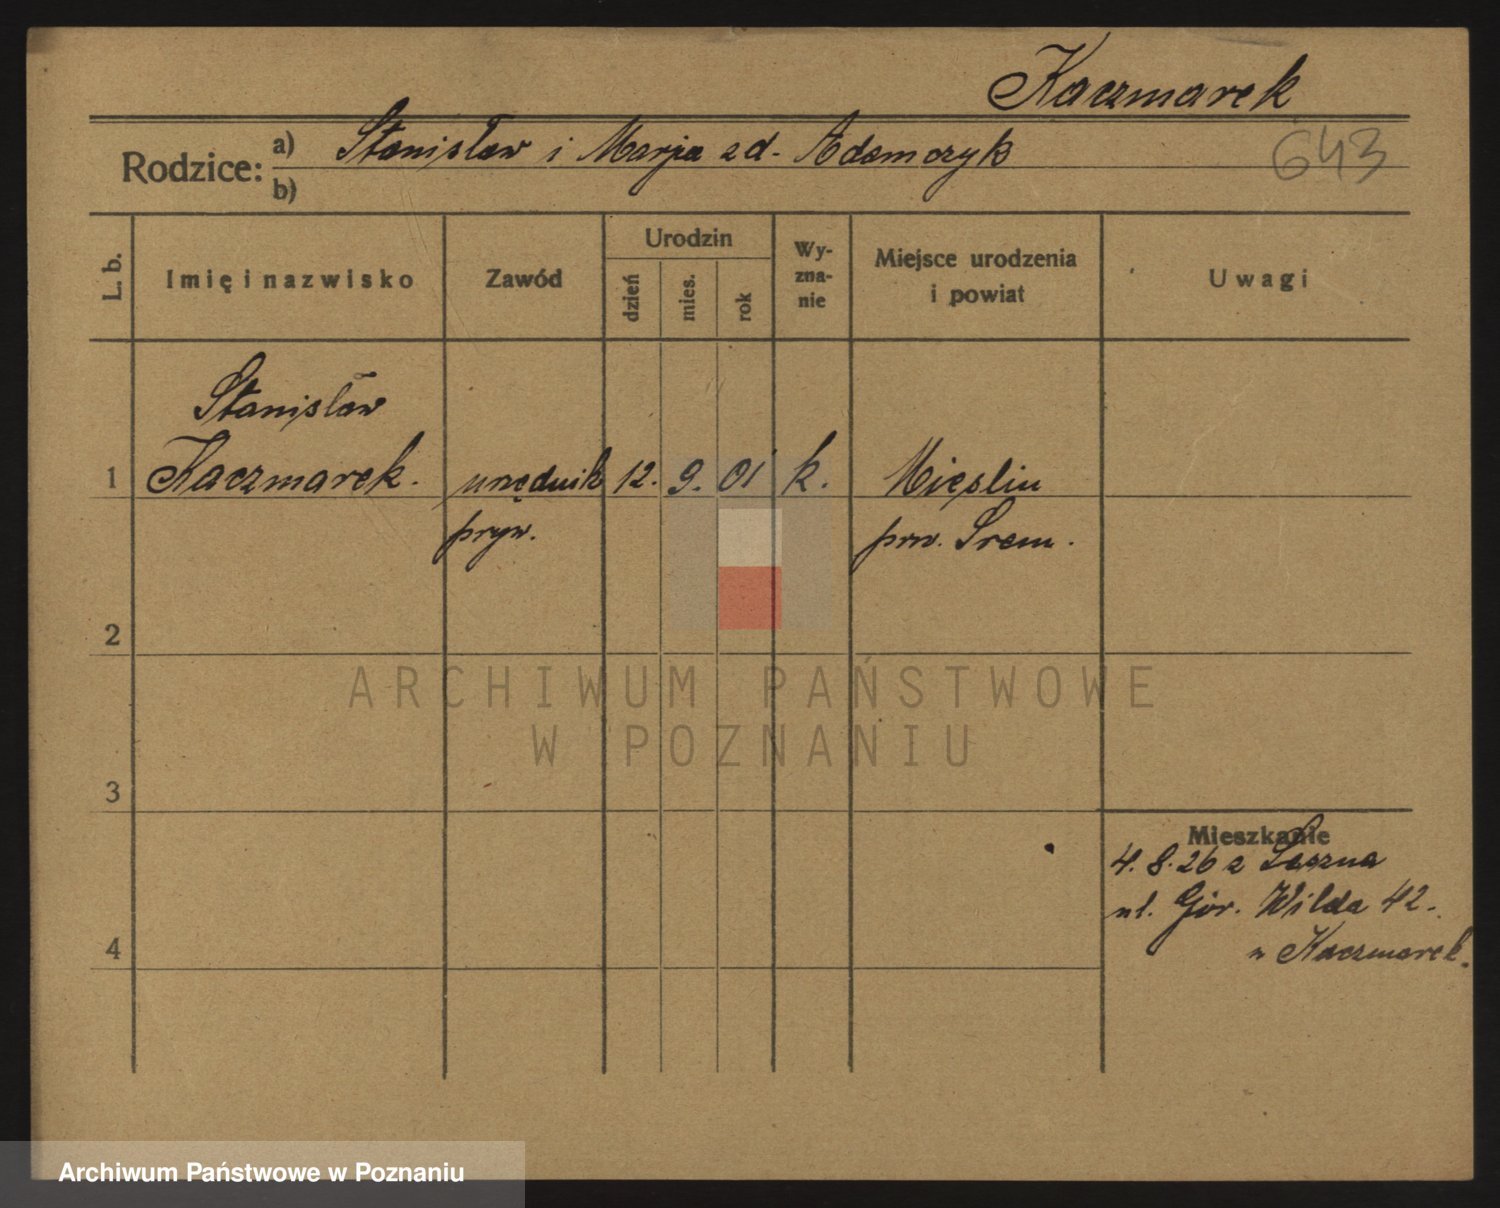 Kaczmarek
643
Rodzice: a) Stanisław i Marja zd. Adamczyk
b)
L. b.
Imię i nazwisko
Zawód
Urodzin
dzień
mies.
rok
Wy-
zna-
nie
Miejsce urodzenia
i powiat
Uwagi
Stanisław
1 Kaczmarek. urzędnik 12. 9. 01 k.
pryw.
pow. Śrem.
2
ARCHIWUM PAŃSTWOWE
W POZNANIU
3
Mieszkanie
4. 8. 26 z Leszna
ul. Gór. Wilda 42.
u Kaczmarek.
4
Archiwum Państwowe w Poznaniu